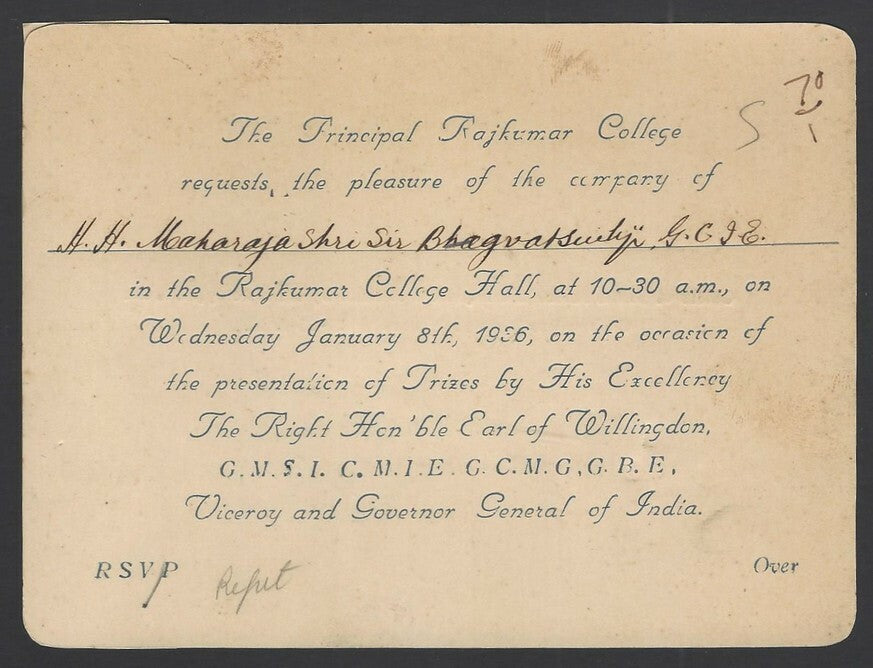 The Principal Rajkumar College
requests, the pleasure of the company of
H. H. Maharaja Shri Sir Bhagvatsinhji, G.C.I.E.
in the Rajkumar College Hall, at 10-30 a.m., on
Wednesday January 8th, 1936, on the occasion of
the presentation of Prizes by His Excellency
The Right Hon'ble Earl of Willingdon,
G. M. S. I. C. M. I. E. G. C. M. G, G. B. E,
Viceroy and Governor General of India.
RSVP
Over